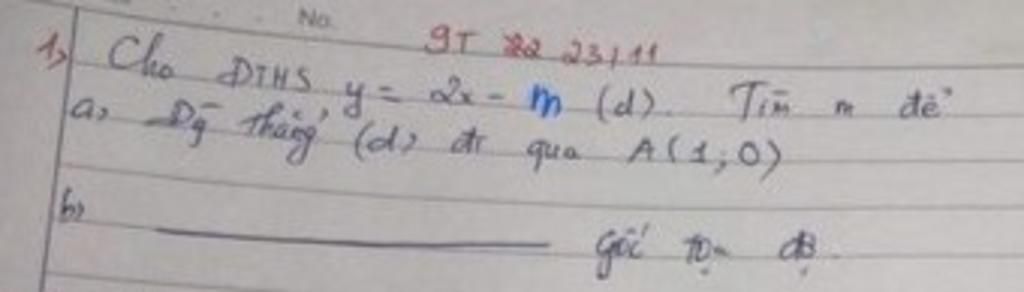 No.
9T 22 23/11
1, Cho ĐTHS y = 2x - m (d). Tìm m để
a, Đg thẳng (d) đi qua A(1;0)
b, ——— gốc toạ độ.